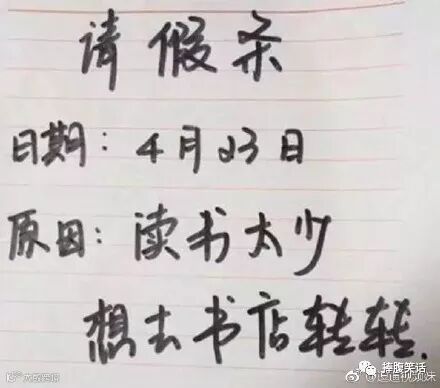 请假条
日期：4月23日
原因：读书太少
想去书店转转.
捧腹笑话